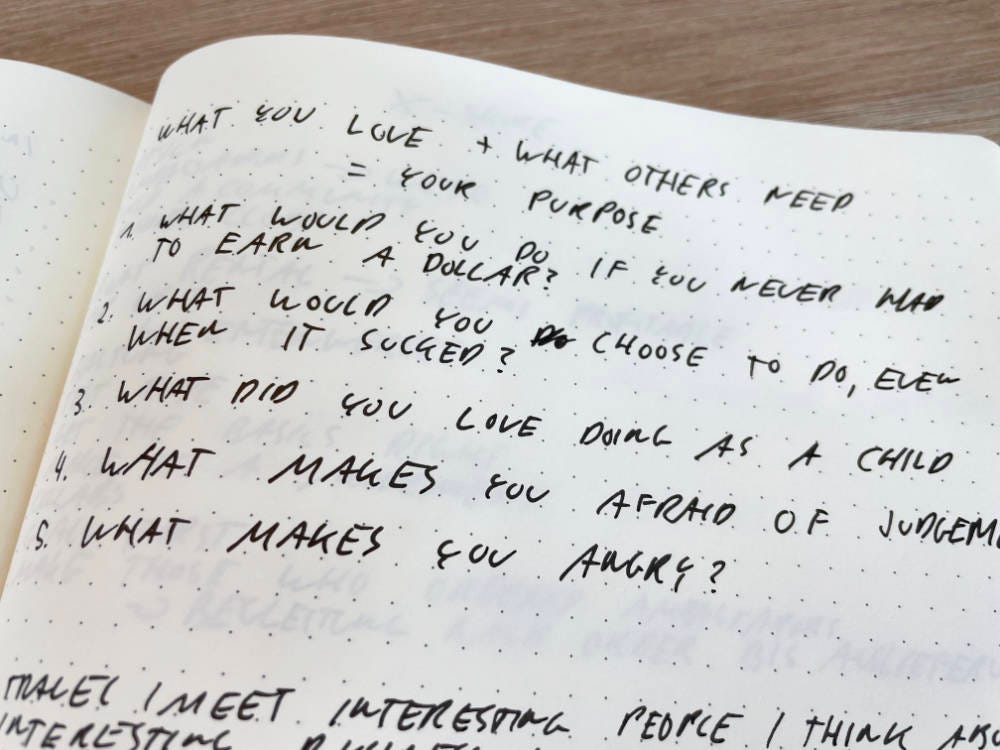 WHAT YOU LOVE + WHAT OTHERS NEED
= YOUR PURPOSE
1. WHAT WOULD YOU DO IF YOU NEVER HAD
TO EARN A DOLLAR?
2. WHAT WOULD YOU CHOOSE TO DO, EVEN
WHEN IT SUCKED?
3. WHAT DID YOU LOVE DOING AS A CHILD
4. WHAT MAKES YOU AFRAID OF JUDGEME
5. WHAT MAKES YOU ANGRY?
I MEET INTERESTING PEOPLE I THINK
INTERESTING